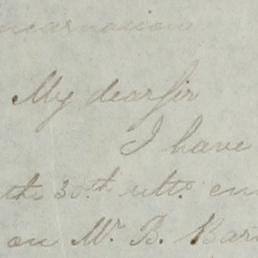 My dear Sir
I have
the 30th ulto. en
on Mr. B. Bar